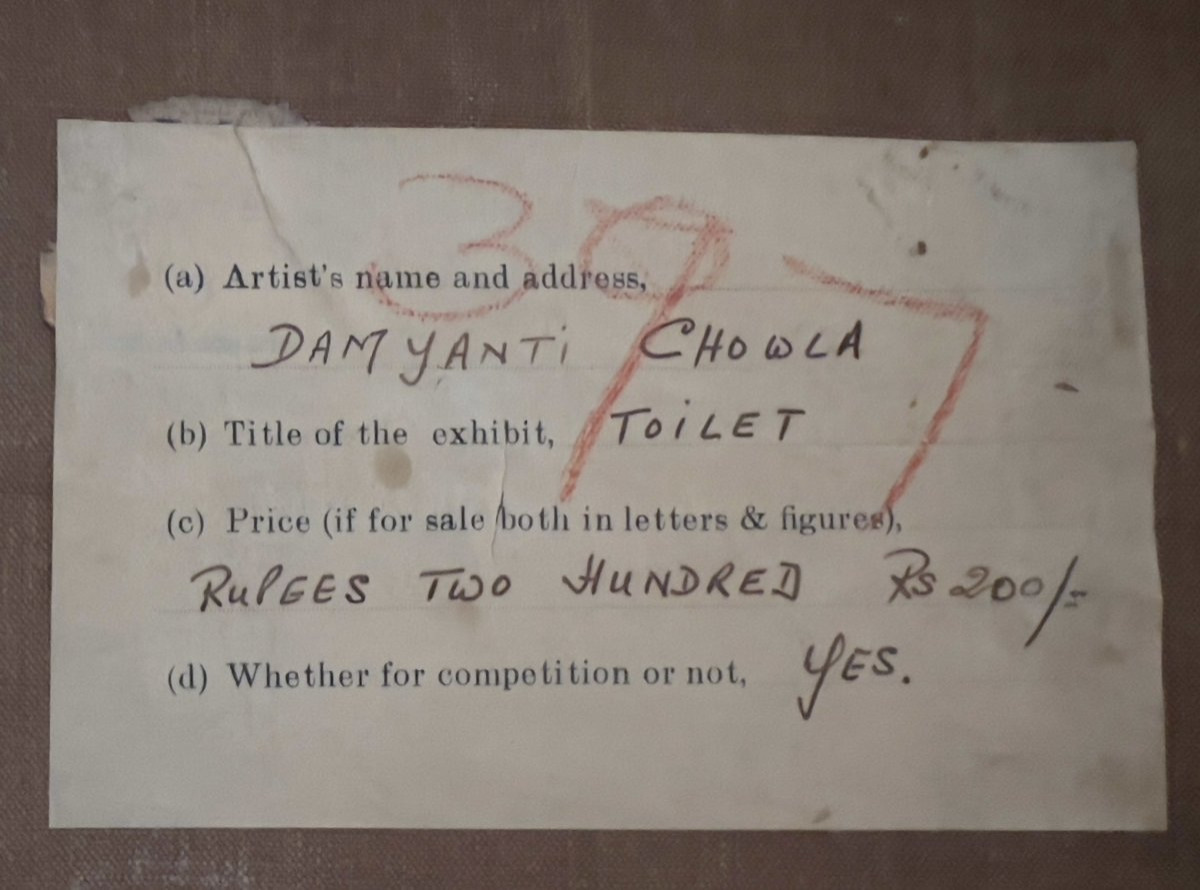 397
(a) Artist's name and address,
DAMYANTi CHOWLA
(b) Title of the exhibit, TOiLET
(c) Price (if for sale both in letters & figures),
RUPEES TWO HUNDRED Rs 200/-
(d) Whether for competition or not, YES.